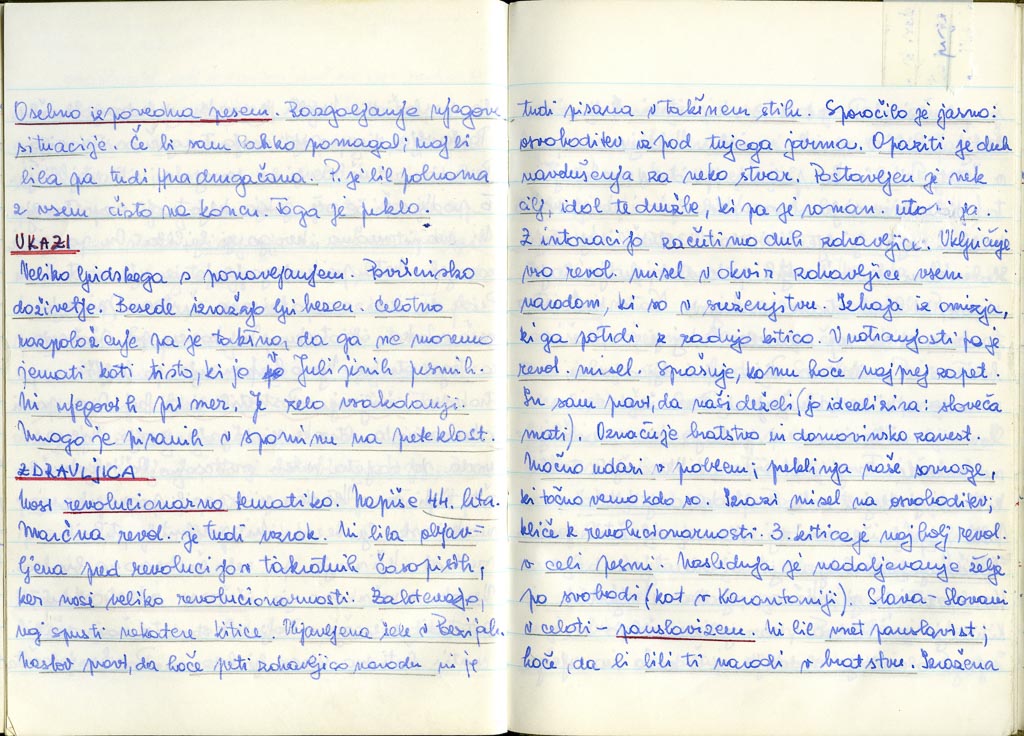 Osebno izpovedna pesem. Razgaljanje njegove
situacije. Če bi sam lahko pomagal; naj bi
bila pa tudi drugačna. P. je bil polnoma
z vsem čisto na koncu. Toga je peklo.
UKAZI
Veliko ljudskega s ponavljanjem. Površinsko
doživetje. Besede izražajo ljubezen. Celotno
razpoloženje pa je takšno, da ga ne moremo
jemati kot tisto, ki je Julijinih pesmih.
Ni njegovih primer. Je zelo vsakdanji.
Mnogo je pisanih v spominu na preteklost.
ZDRAVLJICA
Nosi revolucionarno tematiko. Napiše 44. leta.
Marčna revol. je tudi vzrok. Ni bila objav=
ljena pred revolucijo v takratnih časopisih,
ker nosi veliko revolucionarnosti. Zahtevajo,
naj spusti nekatere kitice. Objavljena šele v
Naslov pravi, da hoče peti zdravljico narodu, ni je
tudi pisana v takšnem stilu. Sporočilo je jasno:
osvoboditev izpod tujega jarma. Opaziti je duh
navdušenja za neko stvar. Postavljen je nek
cilj, idol te družbe, ki pa je roman.
Z intonacijo začutimo duh zdravljice. Vključuje
vso revol. misel v okviri zdravljice vsem
narodom, ki so v suženjstvu. Izhaja iz omizja,
ki ga potrdi z zadnjo kitico. V notranjosti pa je
revol. misel. Sprašuje, komu hoče najprej zapet.
In sam pravi, da naši deželi (jo idealizira: sloveča
mati). Označuje bratstvo in domovinsko zavest.
Močno udari v problem; preklinja naše sovrage,
ki točno vemo kdo so. Izrazi misel na osvoboditev;
kliče k revolucionarnosti. 3. kitica je najbolj revol.
v celi pesmi. Naslednja je nadaljevanje želje
po svobodi (kot v Karantaniji). Slava - Slovani
v celoti - panslavizem. Ni bil vnet panslavist;
hoče, da bi bili ti narodi v bratstvu. Izražena